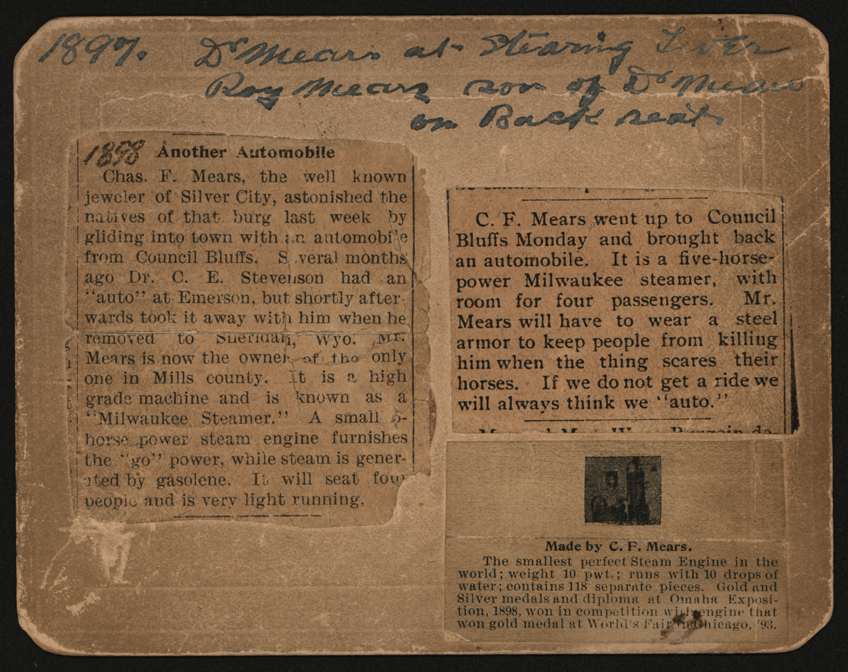 1897. Dr Mears at Stearing Lever
Roy Mears son of Dr Mears
on Back seat
1898 Another Automobile
Chas. F. Mears, the well known
jeweler of Silver City, astonished the
natives of that burg last week by
gliding into town with an automobile
from Council Bluffs. Several months
ago Dr. C. E. Stevenson had an
"auto" at Emerson, but shortly after-
wards took it away with him when he
removed to Sheridan, Wyo. Mr.
Mears is now the owner of the only
one in Mills county. It is a high
grade machine and is known as a
"Milwaukee Steamer." A small
horse power steam engine furnishes
the "go" power, while steam is gener-
ated by gasolene. It will seat four
people and is very light running.
C. F. Mears went up to Council
Bluffs Monday and brought back
an automobile. It is a five-horse-
power Milwaukee steamer, with
room for four passengers. Mr.
Mears will have to wear a steel
armor to keep people from killing
him when the thing scares their
horses. If we do not get a ride we
will always think we "auto."
Made by C. F. Mears.
The smallest perfect Steam Engine in the
world; weight 10 pwt.; runs with 10 drops of
water; contains 118 separate pieces. Gold and
Silver medals and diploma at Omaha Exposi-
tion, 1898, won in competition with engine that
won gold medal at World's Fair in Chicago, '93.